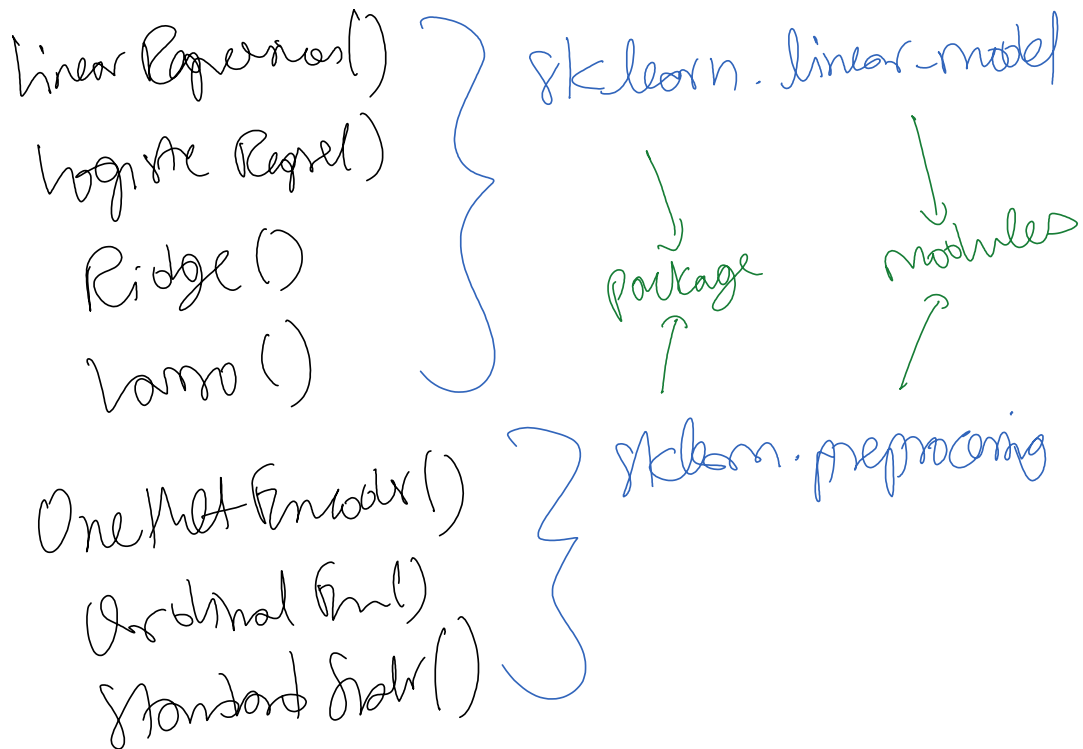 Linear Regression()
Logistic Regre()
Ridge()
Lasso()
sklearn.linear_model
package
modules
OneHotEncoder()
Ordinal En()
Standard Scaler()
sklearn.preprocessing